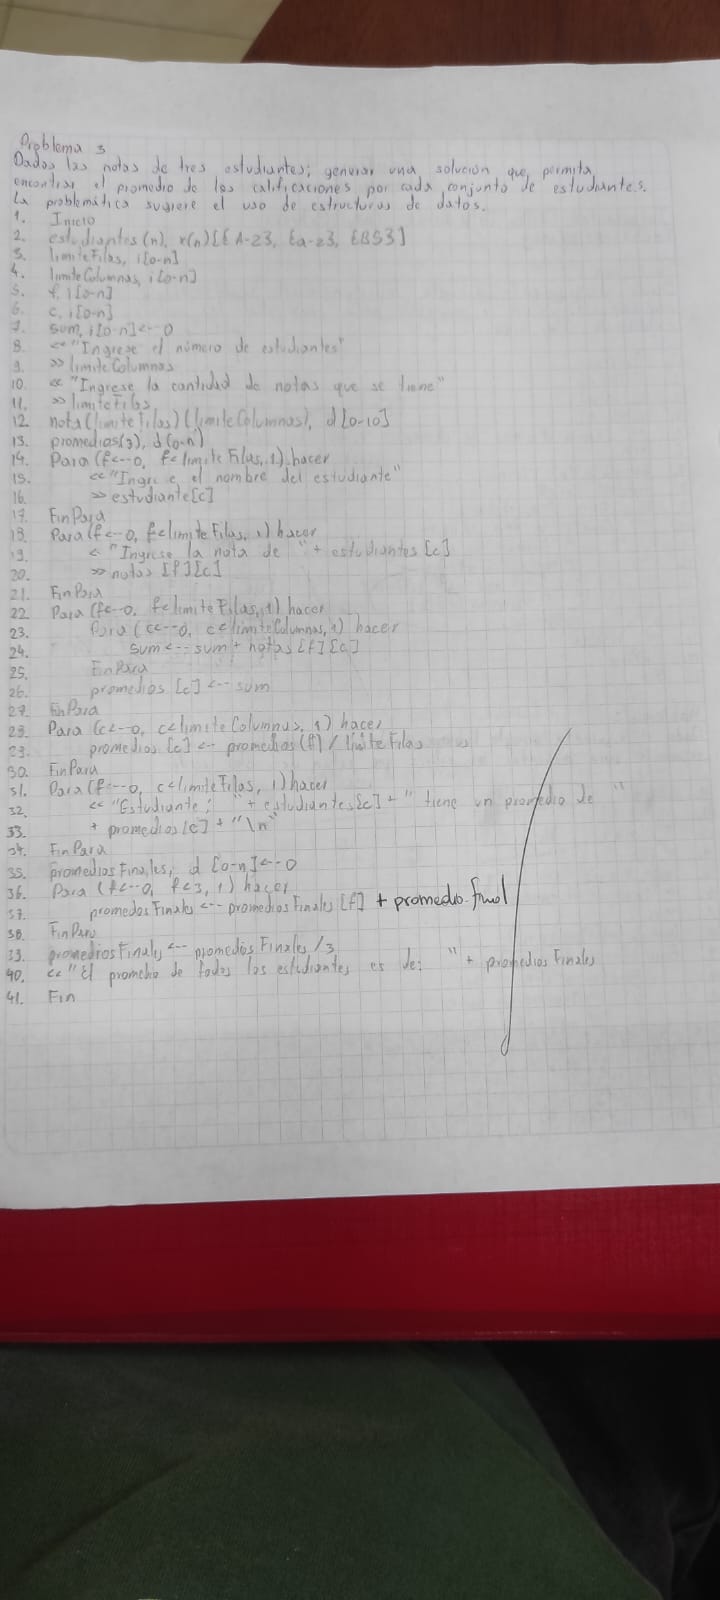 Problema 3
Dados las notas de tres estudiantes; generar una solución que permita
encontrar el promedio de las calificaciones por cada conjunto de estudiantes.
La problemática sugiere el uso de estructuras de datos.
1. Inicio
2. estudiantes(n), r(n)[{A-z}, {a-z}, {BS}]
3. limiteFilas, i[0-n]
4. limiteColumnas, i[0-n]
5. f, i[0-n]
6. c, i[0-n]
7. sum, i[0-n]<--0
8. << "Ingrese el número de estudiantes"
9. >> limiteColumnas
10. << "Ingrese la cantidad de notas que se tiene"
11. >> limiteFilas
12. nota(limiteFilas)(limiteColumnas), d[0-10]
13. promedios(3), d(0-n)
14. Para (f<--0, f<limiteFilas, 1) hacer
15. << "Ingrese el nombre del estudiante"
16. >> estudiante[c]
17. FinPara
18. Para(f<-0, f<limiteFilas, 1) hacer
19. < "Ingrese la nota de " + estudiantes[c]
20. >> notas [f][c]
21. FinPara
22. Para (f<--0, f<limiteFilas, 1) hacer
23. Para (c<--0, c<limiteColumnas, 1) hacer
24. sum<--sum + notas[f][c]
25. FinPara
26. promedios [c] <-- sum
27. FinPara
28. Para (c<--0, c<limiteColumnas, 1) hacer
29. promedios [c] <- promedios(f) / limiteFilas
30. FinPara
31. Para(f<--0, c<limiteFilas, 1) hacer
32. << "Estudiante: " + estudiantes[c] + " tiene un promedio de "
33. + promedios[c] + "\n"
34. FinPara
35. promediosFinales, d [0-n]<--0
36. Para (f<--0, f<3, 1) hacer
37. promedosFinales <-- promediosFinales [f] + promedio final
38. FinPara
39. promediosFinales <-- promediosFinales /3
40. << "El promedio de todos los estudiantes es de: " + promediosFinales
41. Fin